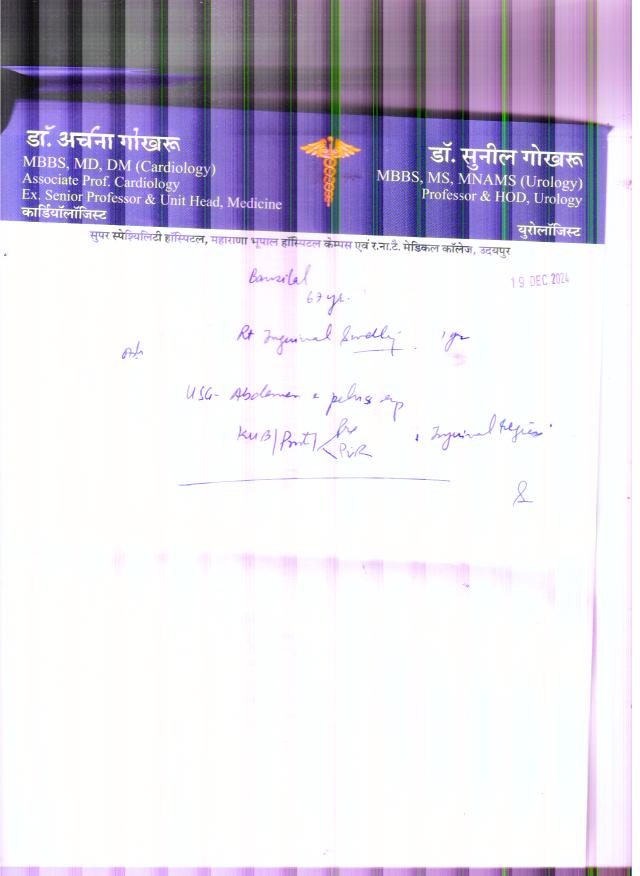 डॉ. अर्चना गोखरू
MBBS, MD, DM (Cardiology)
Associate Prof. Cardiology
Ex. Senior Professor & Unit Head, Medicine
कार्डियॉलॉजिस्ट
डॉ. सुनील गोखरू
MBBS, MS, MNAMS (Urology)
Professor & HOD, Urology
युरोलॉजिस्ट
सुपर स्पेश्यिलिटी हॉस्पिटल, महाराणा भूपाल हॉस्पिटल केम्पस एवं र.ना.टै. मेडिकल कॉलेज, उदयपुर
19 DEC 2024
Bansilal
67 yr.
Rt Inguinal Swelling. 1 yr
USG- Abdomen & pelvis
KUB/Prost/ Pre
PVR
Inguinal Region